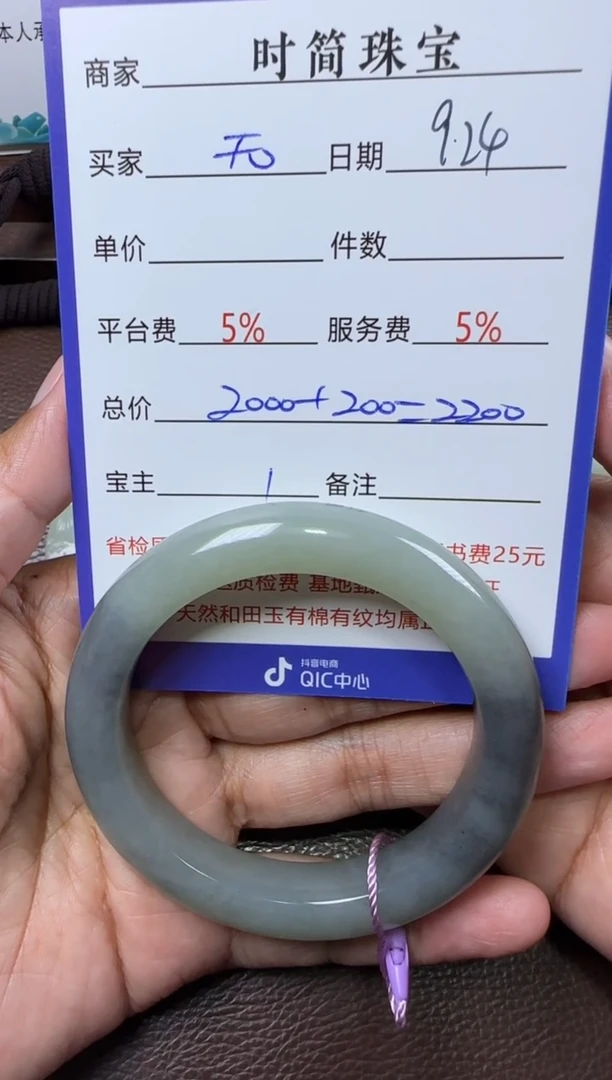 本人承
商家 时简珠宝
买家 日期 9.24
单价 件数
平台费 5% 服务费 5%
总价 2000+200=2200
宝主 1 备注
省检 书费25元
质检费 基地
天然和田玉有棉有纹均属
抖音电商
QIC中心